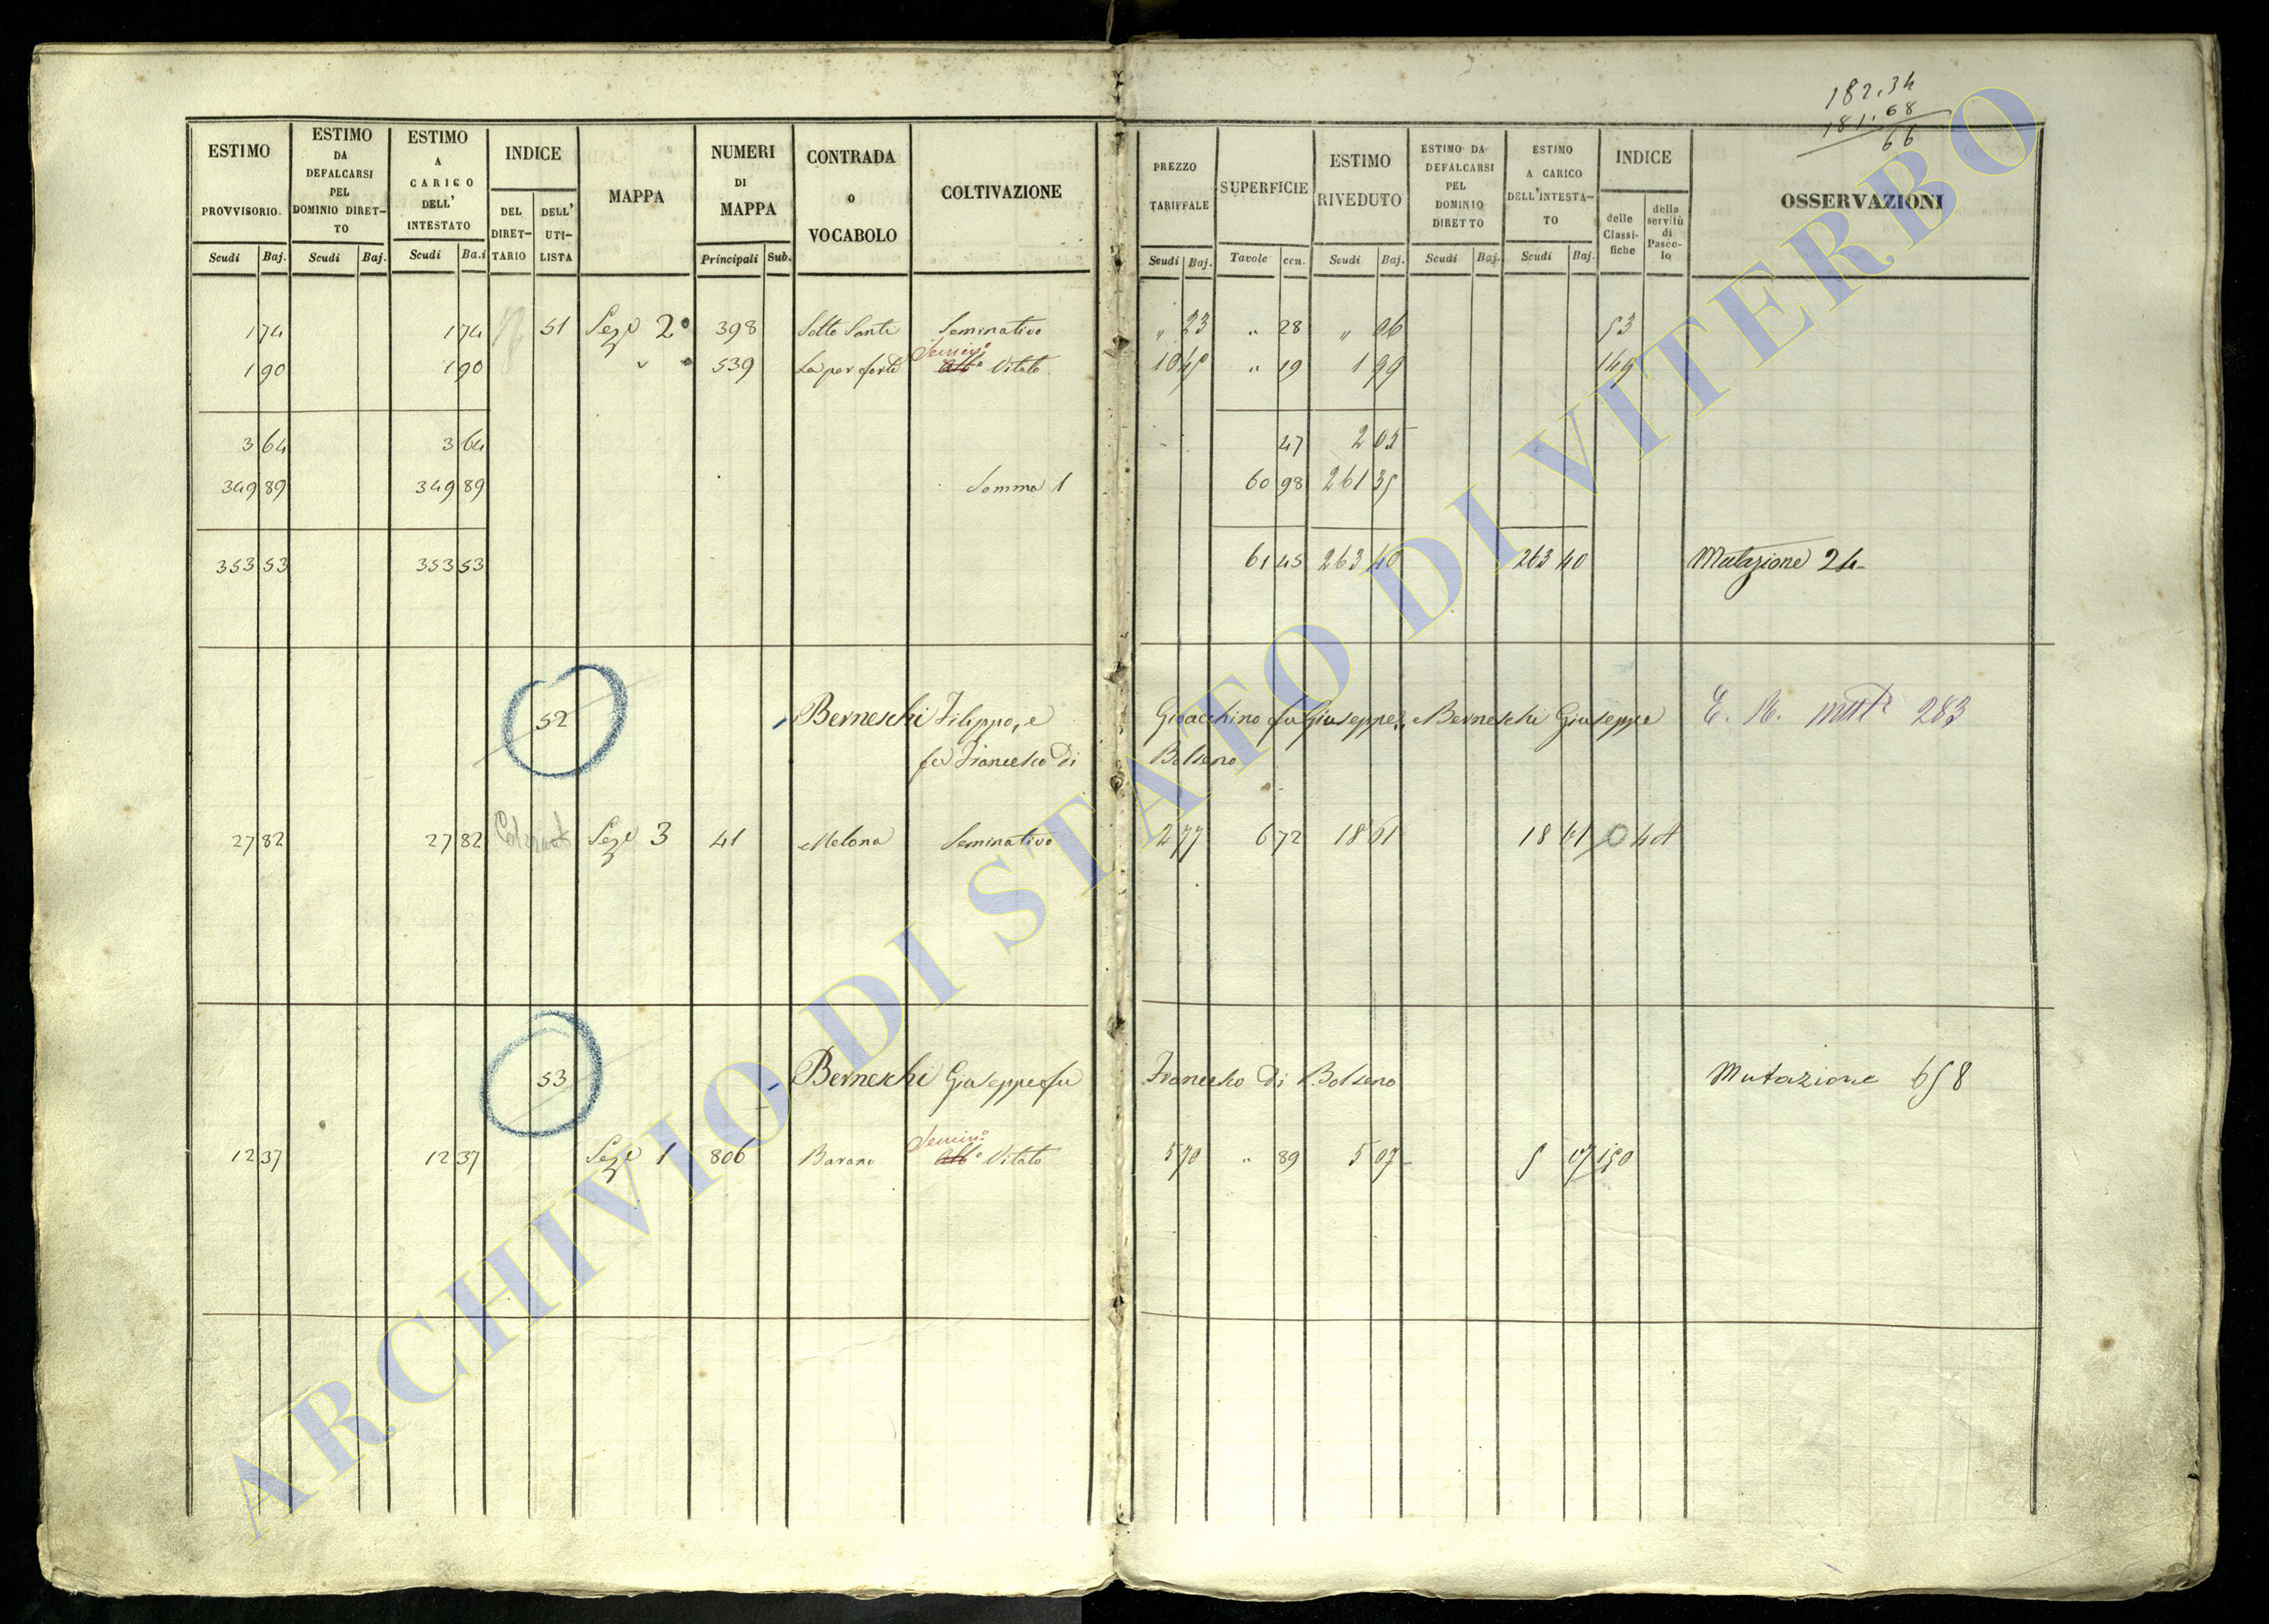 182.34
181.68
66
ESTIMO PROVVISORIO. Scudi Baj.
ESTIMO DA DEFALCARSI PEL DOMINIO DIRET-TO Scudi Baj.
ESTIMO A CARICO DELL' INTESTATO Scudi Ba.i
INDICE DEL DIRET-TARIO DELL' UTI-LISTA
MAPPA
NUMERI DI MAPPA Principali Sub.
CONTRADA o VOCABOLO
COLTIVAZIONE
PREZZO TARIFFALE Scudi Baj.
SUPERFICIE Tavole cen.
ESTIMO RIVEDUTO Scudi Baj.
ESTIMO DA DEFALCARSI PEL DOMINIO DIRETTO Scudi Baj.
ESTIMO A CARICO DELL'INTESTA-TO Scudi Baj.
INDICE delle Classi-fiche della servitù di Pasco-lo
OSSERVAZIONI
1 74 1 74 51 Sez.e 2° 398 Sotto Sante Seminativo " 23 " 28 " 06 53
Semin.o
1 90 1 90 " " 539 Vitato 10 45 " 19 1 99 149
3 64 3 64 47 2 05
349 89 349 89 Somma 1 60 98 261 35
353 53 353 53 61 45 263 40 263 40 Mutazione 24
52 Berneschi Filippo, e Gioacchino fu Giuseppe, e Berneschi Giuseppe 283
fu Francesco di Bolseno
27 82 27 82 Sez.e 3 41 Melona Seminativo 2 77 6 72 18 61 18 61
53 Berneschi Giuseppe fu Francesco di Bolseno Mutazione 658
Semin.o
12 37 12 37 Sez.e 1 806 Barano Vitato 5 70 " 89 5 07 5 07 150
ARCHIVIO DI STATO DI VITERBO